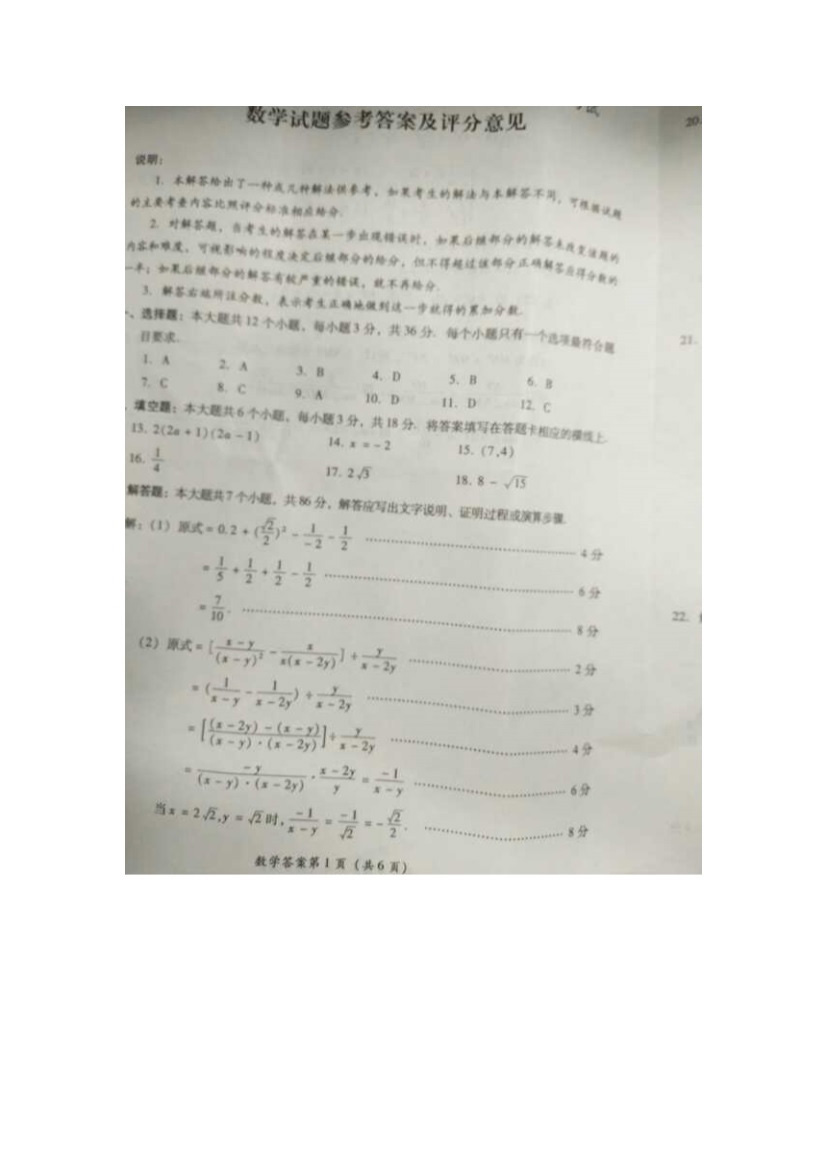 数学试题参考答案及评分意见
说明:
1. 本解答给出了一种或几种解法供参考, 如果考生的解法与本解答不同, 可根据试题
的主要考查内容比照评分标准相应给分.
2. 对解答题, 当考生的解答在某一步出现错误时, 如果后继部分的解答未改变该题的
内容和难度, 可视影响的程度决定后继部分的给分, 但不得超过该部分正确解答应得分数的
一半; 如果后继部分的解答有较严重的错误, 就不再给分.
3. 解答右端所注分数, 表示考生正确地做到这一步就得的累加分数.
一、选择题: 本大题共12个小题, 每小题3分, 共36分. 每个小题只有一个选项最符合题
目要求.
1. A 2. A 3. B 4. D 5. B 6. B
7. C 8. C 9. A 10. D 11. D 12. C
填空题: 本大题共6个小题, 每小题3分, 共18分. 将答案填写在答题卡相应的横线上.
13. 2(2a+1)(2a-1) 14. x=-2 15. (7,4)
16. 1/4 17. 2√3 18. 8-√15
解答题: 本大题共7个小题, 共86分, 解答应写出文字说明、证明过程或演算步骤.
解: (1) 原式=0.2+(√2/2)²-1/-2-1/2 ……4分
=1/5+1/2+1/2-1/2 ……6分
=7/10. ……8分
(2) 原式=[(x-y)/(x-y)²-x/x(x-2y)]÷y/(x-2y) ……2分
=(1/(x-y)-1/(x-2y))÷y/(x-2y) ……3分
=[((x-2y)-(x-y))/((x-y)·(x-2y))]÷y/(x-2y) ……4分
=-y/((x-y)·(x-2y))·(x-2y)/y=-1/(x-y) ……6分
当x=2√2,y=√2时, -1/(x-y)=-1/√2=-√2/2. ……8分
数学答案第1页(共6页)
20.
21.
22.